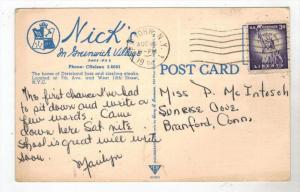 Nick's
In Greenwich Village
Phone: CHelsea
The home of Dixieland Jazz and sizzling steaks.
Located at 7th Ave. and West 10th Street,
N.Y.C.
N. Y.
POST CARD
U.S. POSTAGE 3¢
LIBERTY
The first chance I've had
to sit down and write a
few words. Came
down here Sat nite
School is great will write
soon.
Marilyn
Miss P. McIntosh
Sunrise Cove.
Branford, Conn.